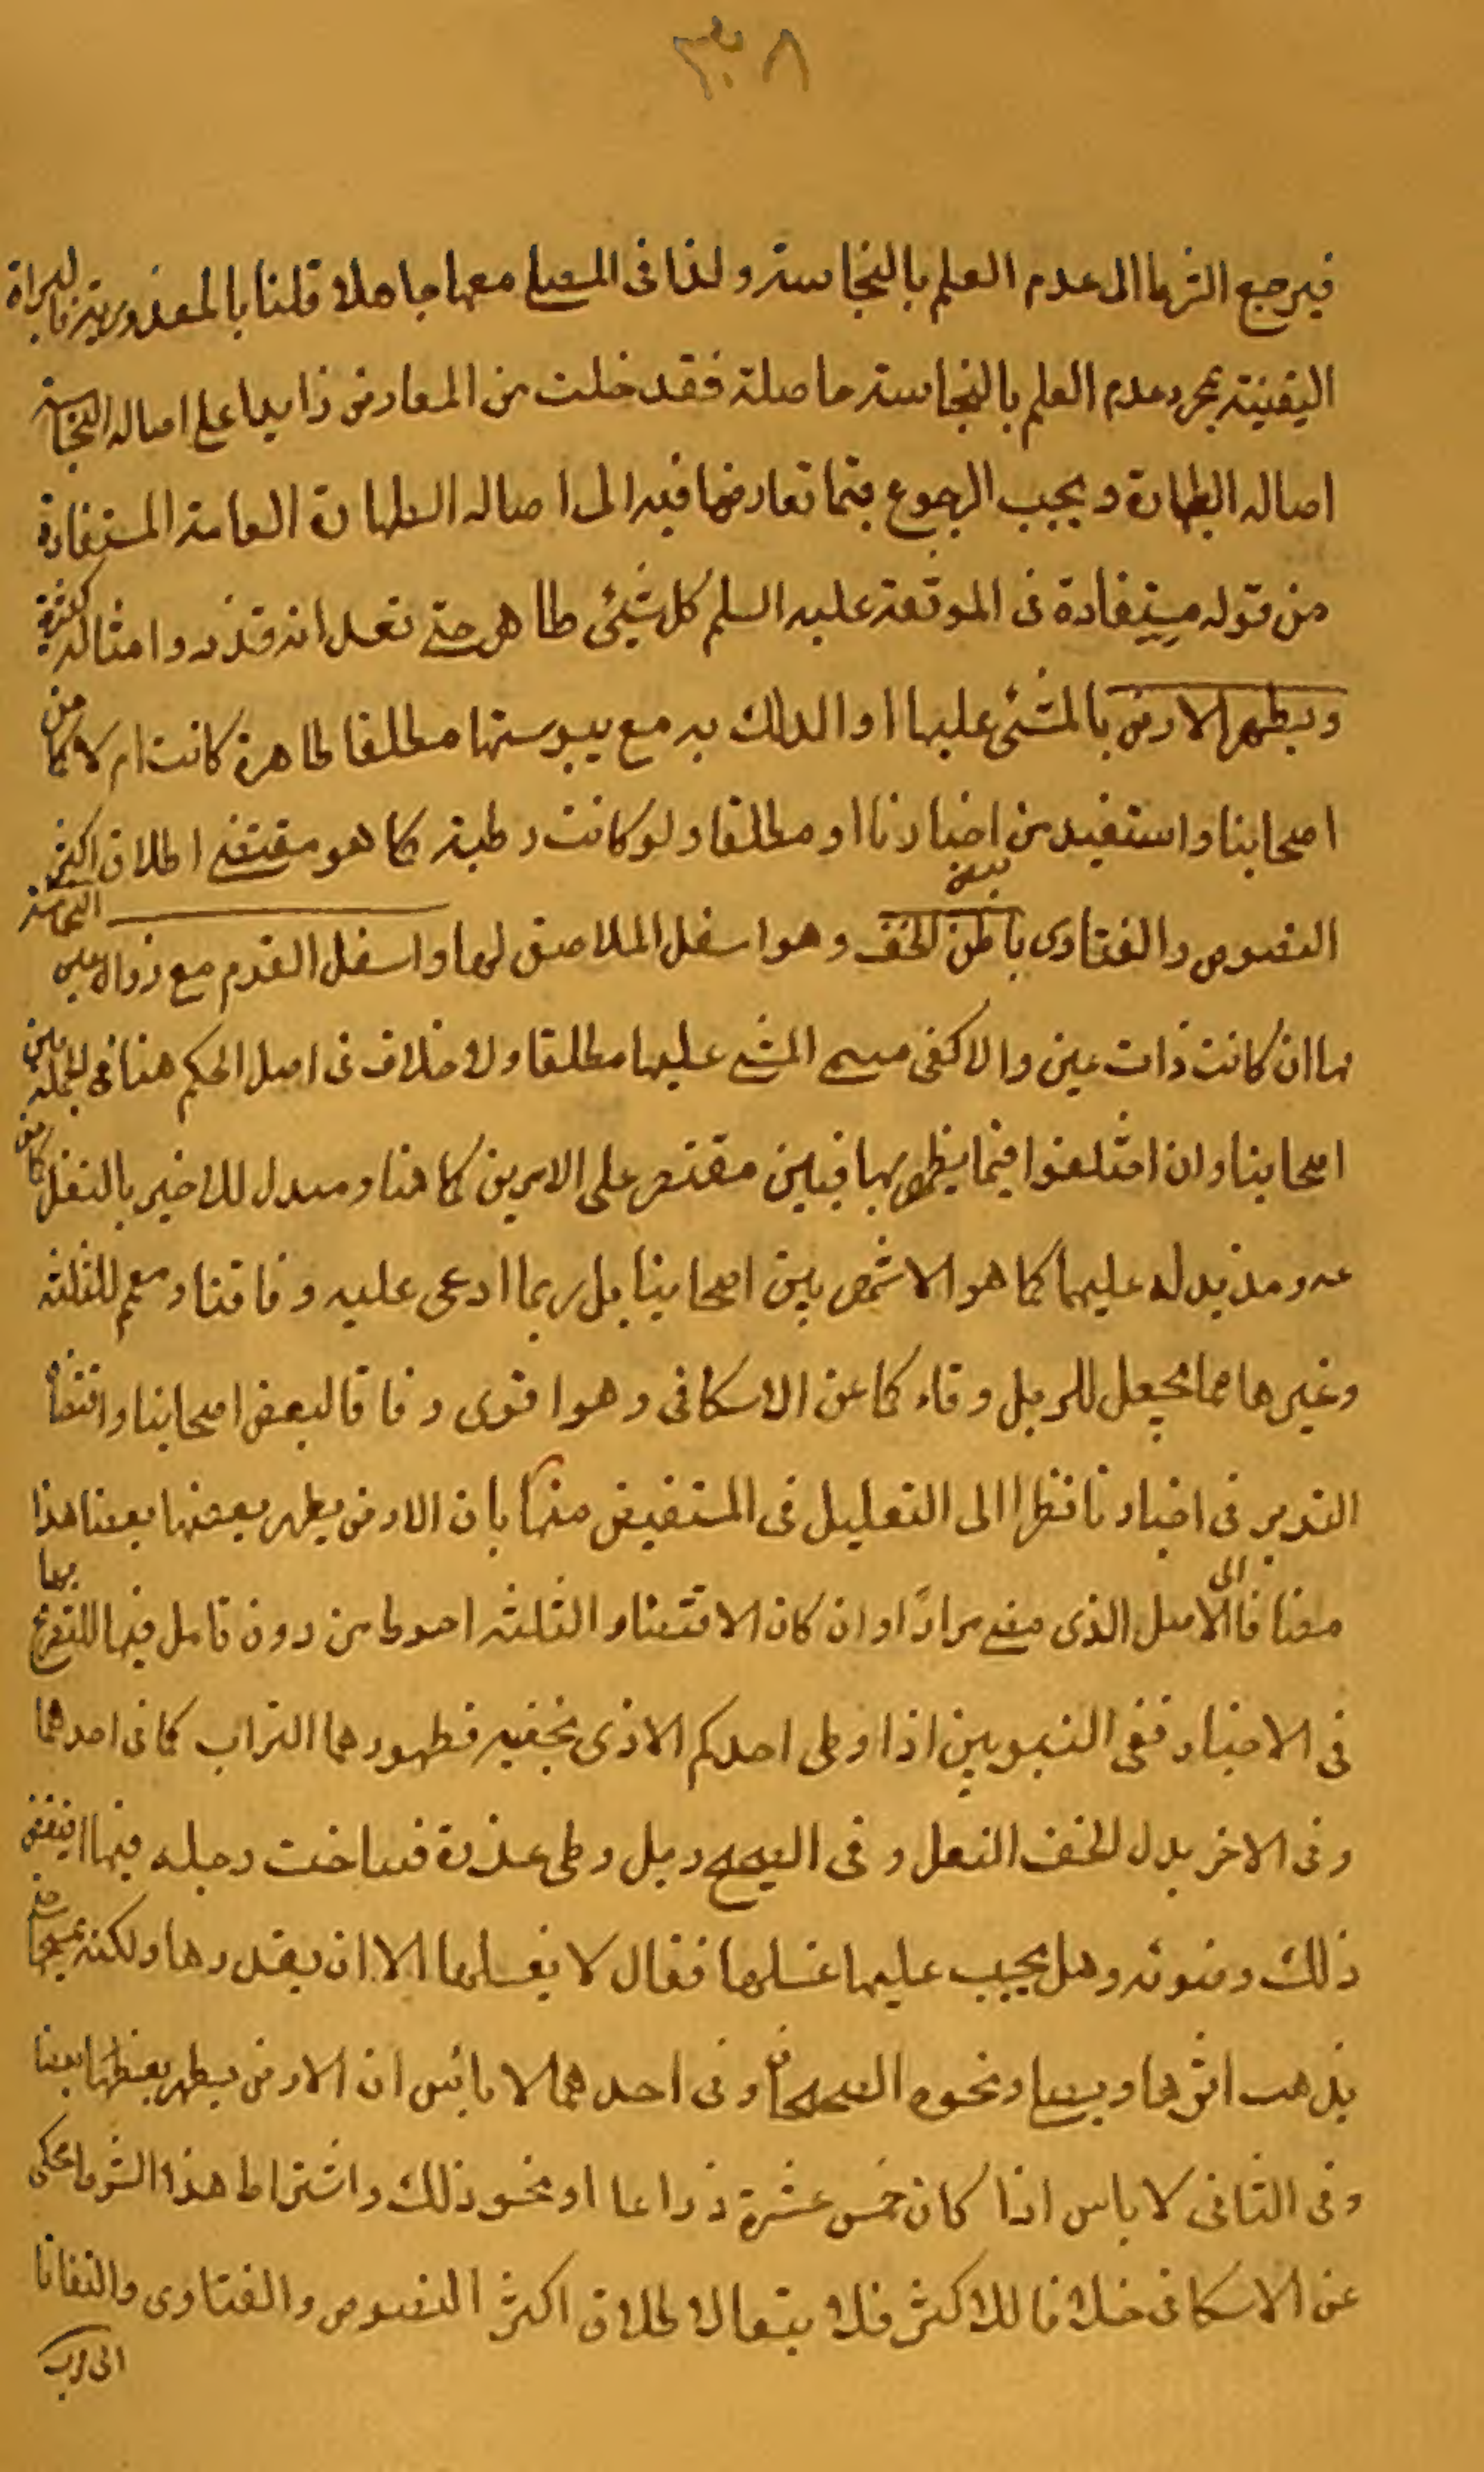 ٣٠٨
فيرجع الشرط الى عدم العلم بالنجاسة ولذا فى المصلى معها جاهلا قلنا بالمعذورية فالبراة
اليقينية بمجرد عدم العلم بالنجاسة حاصلة فقد خلت من المعارض زايدا على اصاله النجاسة
اصاله الطهارة ويجب الرجوع فيما تعارضا فيه الى اصاله الطهارة العامة المستفادة
من قوله مستفادة فى الموثقة عليه السلم كل شيئى طاهر حتى تعلم انه قذر وامثاله كثيرة
ويطهر الارض بالمشئى عليها او الدلك به مع يبوستها مطلقا طاهرة كانت ام لا كما من
اصحابنا واستفيد من اخبارنا او مطلقا ولو كانت رطبة كما هو مقتضى اطلاق اكثر
النصوص والفتاوى باطن الخف وهو اسفل الملاصق لها واسفل القدم مع زوال عين النجاسة
بها ان كانت ذات عين والا كفى مسمى المشى عليها مطلقا ولا خلاف فى اصل الحكم هنا فى الجملة بين
اصحابنا وان اختلفوا فيما يطهر بها فبين مقتصر على الامرين كما هنا ومبدل للاخير بالنعل كما
عنه ومذيد له عليهما كما هو الاشهر بين اصحابنا بل ربما ادعى عليه وفاقنا ومعمم للثلثة
وغيرها مما يجعل للرجل وقاء كما عن الاسكافى وهو اقوى وفاقا لبعض اصحابنا واقتضاء
التدبر فى اخبارنا نظرا الى التعليل فى المستفيض منها بان الارض يطهر بعضها بعضا هذا
مضافا الى الاصل الذى مضى مرارًا وان كان الاقتصار والثلثة احوط من دون تامل فيها للتصريح بها
فى الاخبار ففى النبويين اذا وطى احدكم الاذى بخفيه فطهورهما التراب كما فى احدهما
وفى الاخر بدل الخف النعل وفى الصحيح رجل وطى عذرة فساخت رجله فيها اينقض
ذلك وضوئه وهل يجب عليها غسلها فقال لا يغسلها الا ان يقذرها ولكنه يمسحها حتى
يذهب اثرها ويصلى ونحوه الصحيحان وفى احدهما لا باس ان الارض يطهر بعضها بعضا
وفى الثانى لا باس اذا كان خمس عشرة ذراعا او نحو ذلك واشتراط هذا الشرط محكى
عن الاسكافى خلافا للاكثر فلا يقال لاطلاق اكثر النصوص والفتاوى والتفاتا